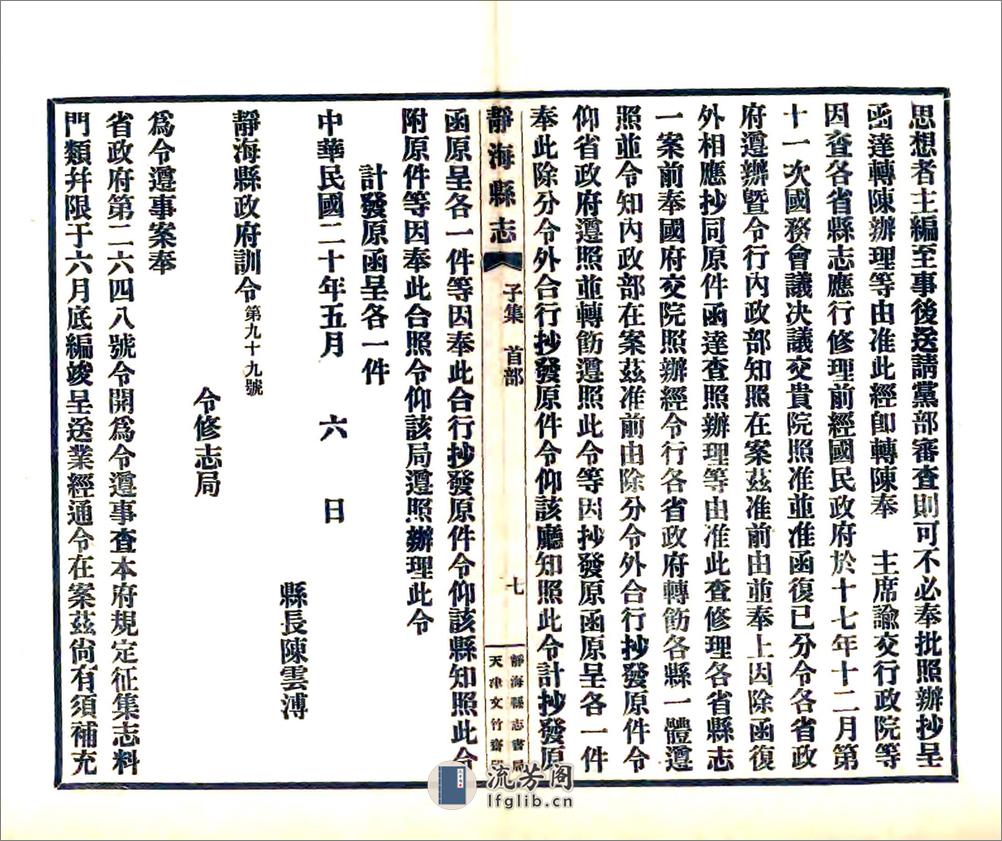 思想者主編至事後送請黨部審查則可不必奉批照辦抄呈
函達轉陳辦理等由准此經卽轉陳奉　主席諭交行政院等
因查各省縣志應行修理前經國民政府於十七年十二月第
十一次國務會議决議交貴院照准並准函復已分令各省政
府遵辦暨令行內政部知照在案茲准前由並奉上因除函復
外相應抄同原件函達查照辦理等由准此查修理各省縣志
一案前奉國府交院照辦經令行各省政府轉飭各縣一體遵
照並令知內政部在案茲准前由除分令外合行抄發原件令
仰省政府遵照並轉飭遵照此令等因抄發原函原呈各一件
奉此除分令外合行抄發原件令仰該廳知照此令計抄發原
靜海縣志　子集　首部　七　靜海縣志書局
天津文竹齋
函原呈各一件等因奉此合行抄發原件令仰該縣知照此令
附原件等因奉此合照令仰該局遵照辦理此令
計發原函呈各一件
中華民國二十年五月　六　日
縣長陳雲溥
靜海縣政府訓令第九十九號
令修志局
爲令遵事案奉
省政府第二六四八號令開爲令遵事查本府規定征集志料
門類幷限于六月底編竣呈送業經通令在案茲尙有須補充
流芳阁
lfglib.cn